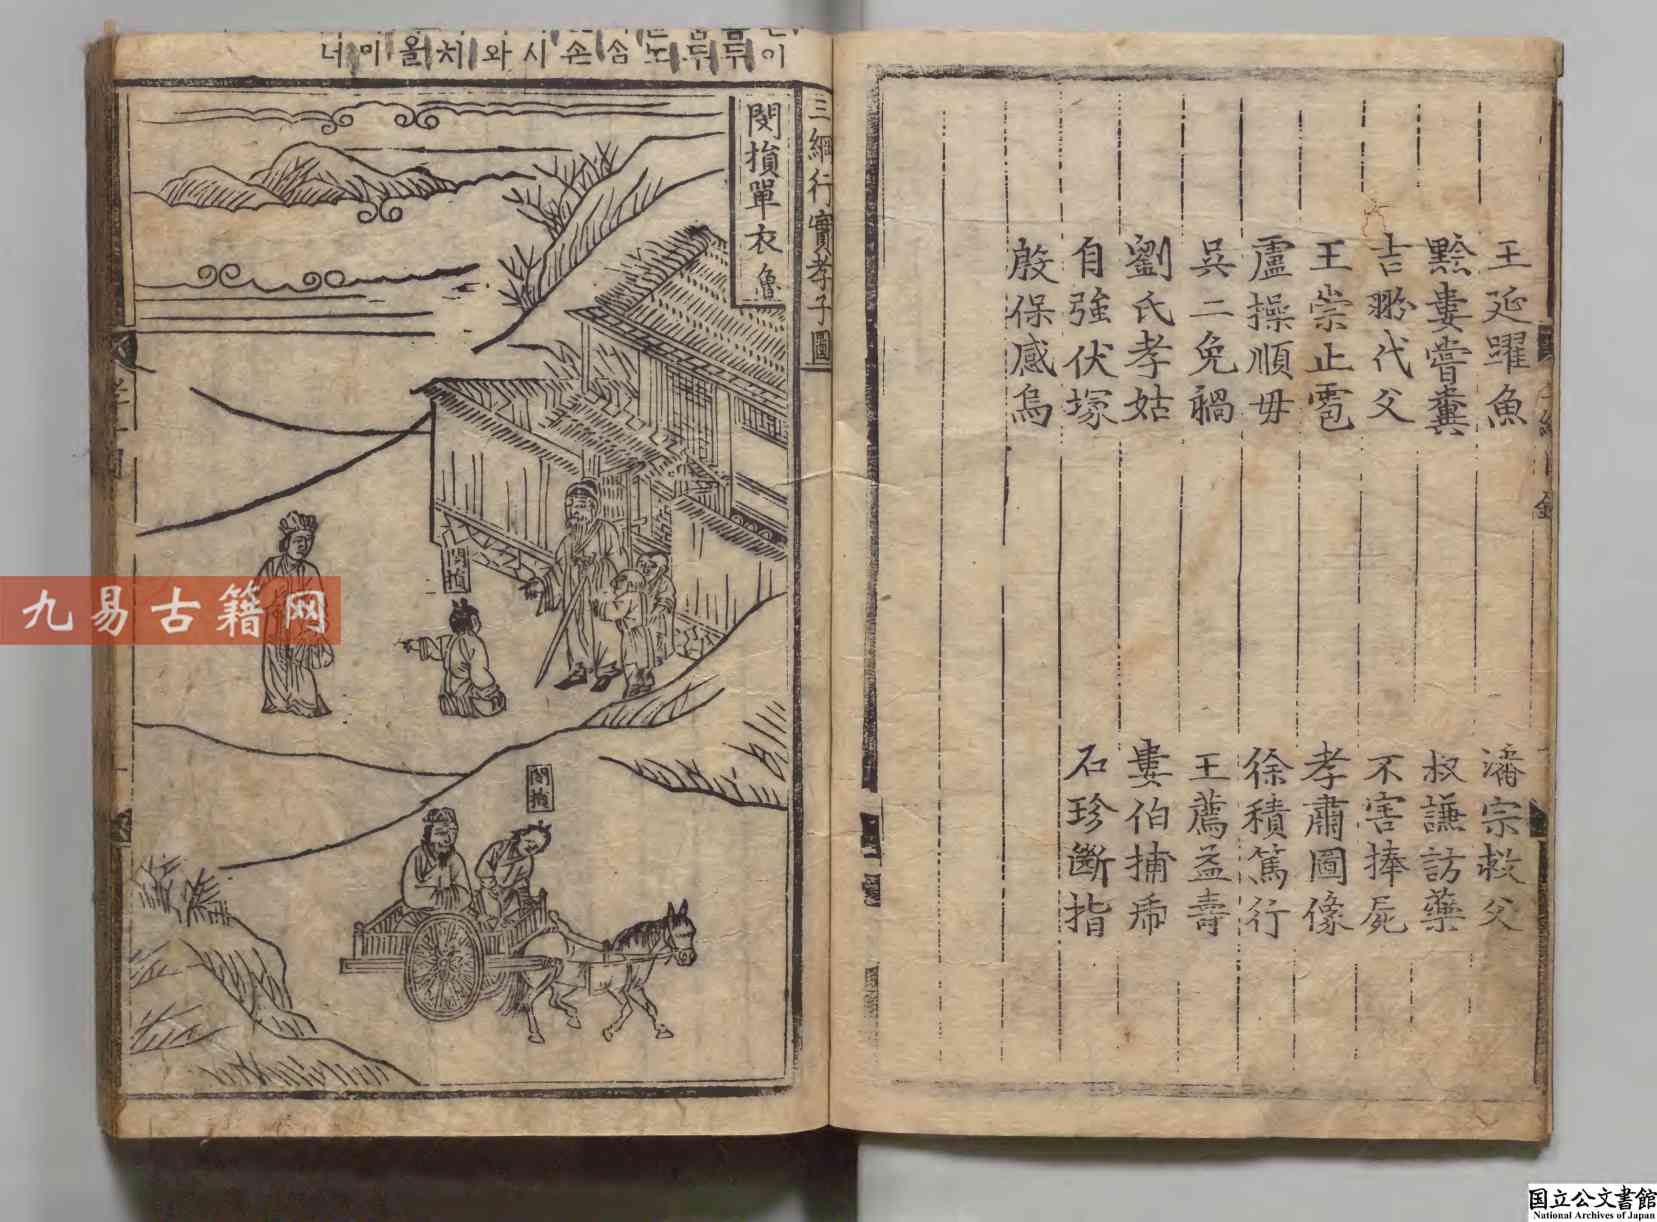 王延躍魚
潘宗救父
黔婁嘗糞
叔謙訪藥
吉翂代父
不害捧屍
王崇止雹
孝肅圖像
盧操順母
徐積篤行
吳二免禍
王薦益壽
劉氏孝姑
婁伯捕虎
自強伏塚
石珍斷指
殷保感烏
三綱行實孝子圖
閔損單衣 魯
閔損
閔損
너미올치와시손솜노두두이
九易古籍网
国立公文書館
National Archives of Japan